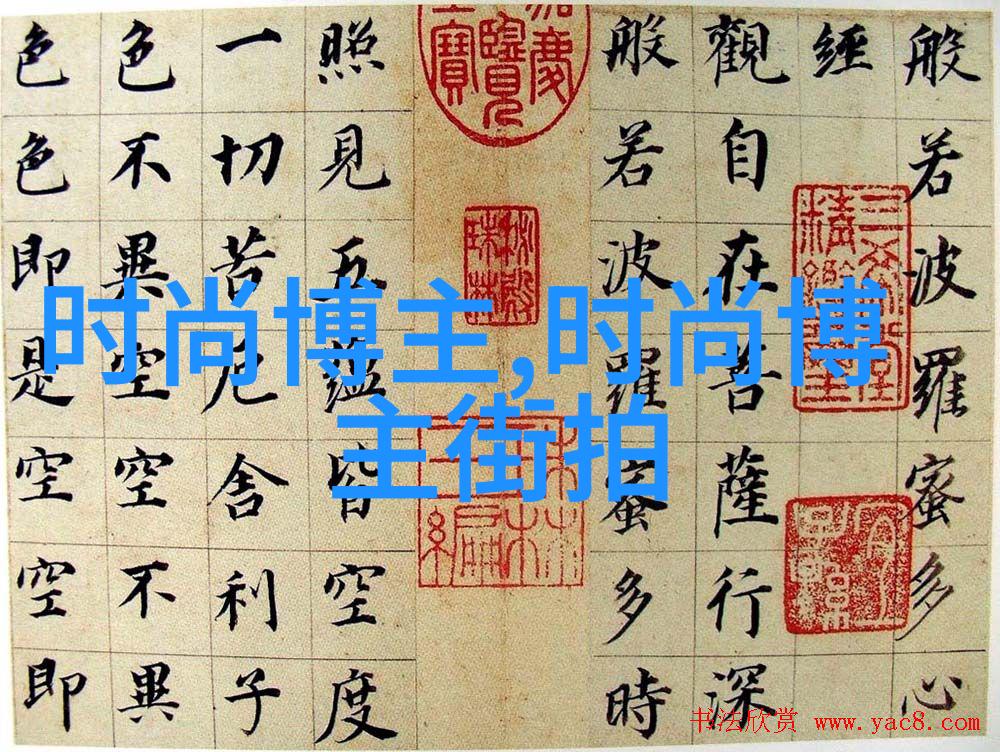 般若波羅蜜多心
經
觀自在菩薩行深
般若波羅蜜多時
照見五蘊皆空度
一切苦厄舍利子
色不異空空不異
色色即是空空即
三希堂精鑑璽
秘殿珠林
时尚博主,时尚博
主街拍
书法欣赏 www.yac8.com